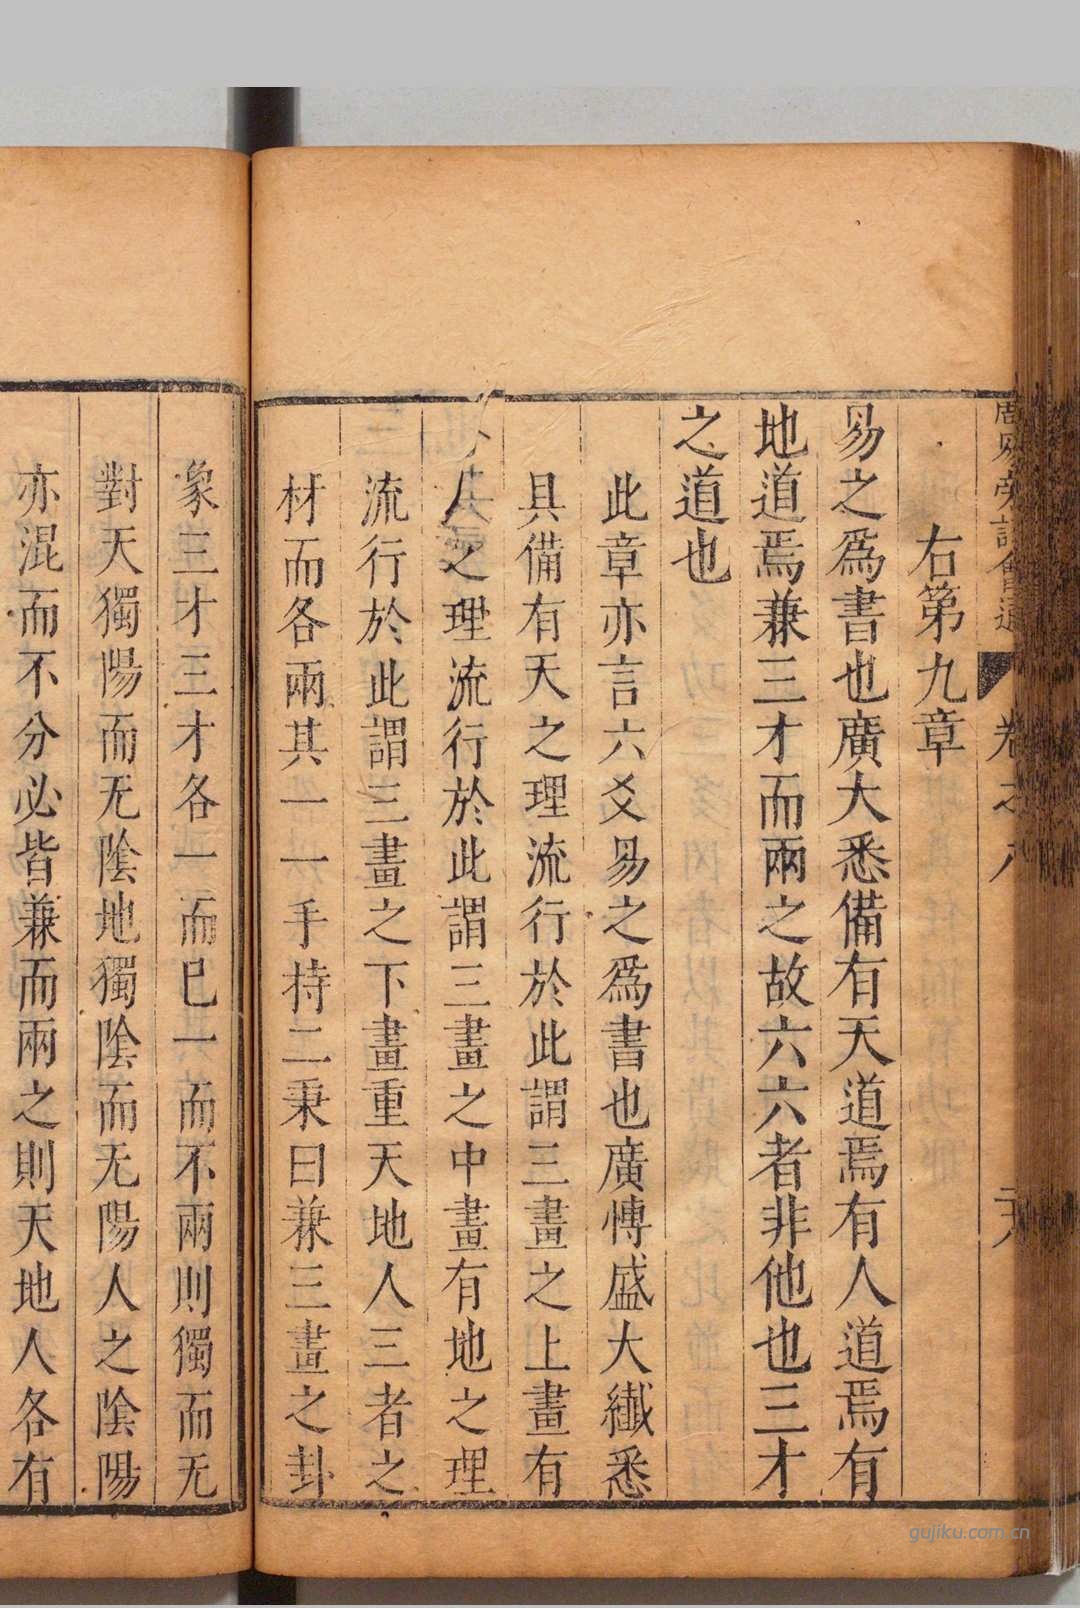 右第九章
易之爲書也廣大悉備有天道焉有人道焉有
地道焉兼三才而兩之故六六者非他也三才
之道也
此章亦言六爻易之爲書也廣愽盛大纎悉
具備有天之理流行於此謂三畫之上畫有
人之理流行於此謂三畫之中畫有地之理
流行於此謂三畫之下畫重天地人三者之
材而各兩其一一手持二秉曰兼三畫之卦
象三才三才各一而已一而不兩則獨而无
對天獨陽而无隂地獨隂而无陽人之隂陽
亦混而不分必皆兼而兩之則天地人各有
卷之八
gujiku.com.cn